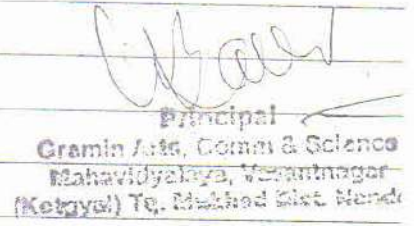 Principal
Gramin Arts, Comm & Science
Mahavidyalaya, Vasantnagar
(Kotgyal) Tq. Mukhed Dist. Nande